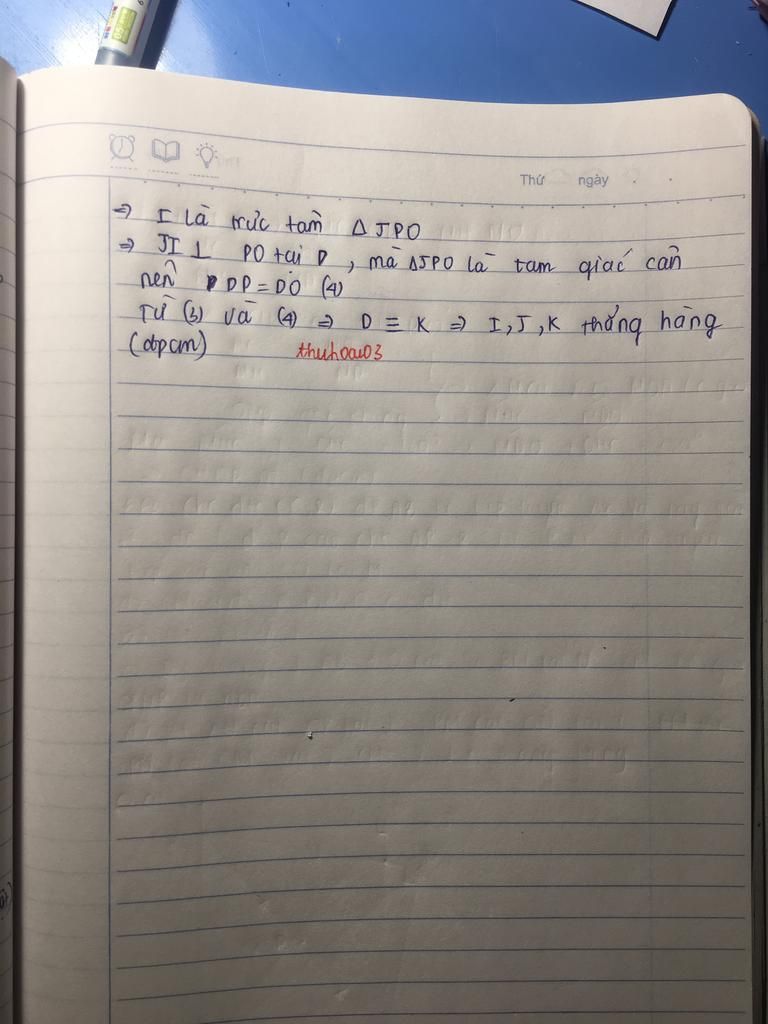 Thứ ngày
⇒ I là trực tâm Δ JPO
⇒ JI ⊥ PO tại D, mà ΔJPO là tam giác cân
nên DP = DO (4)
Từ (3) và (4) ⇒ D ≡ K ⇒ I, J, K thẳng hàng
(đpcm) thuhoai03